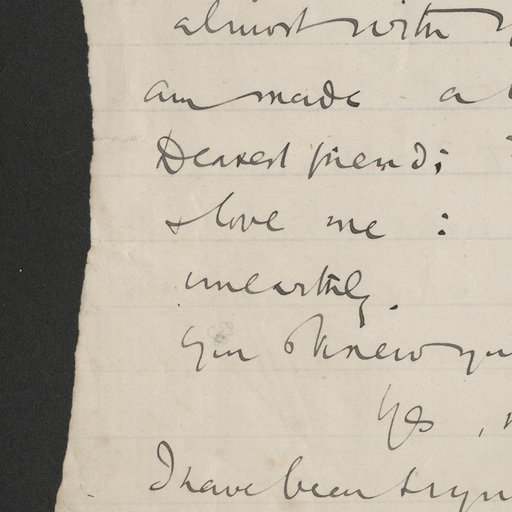 almost with
am made a
Dearest friend;
& love me :
unearthly.
you knew you
Yes ,
I have been tryin